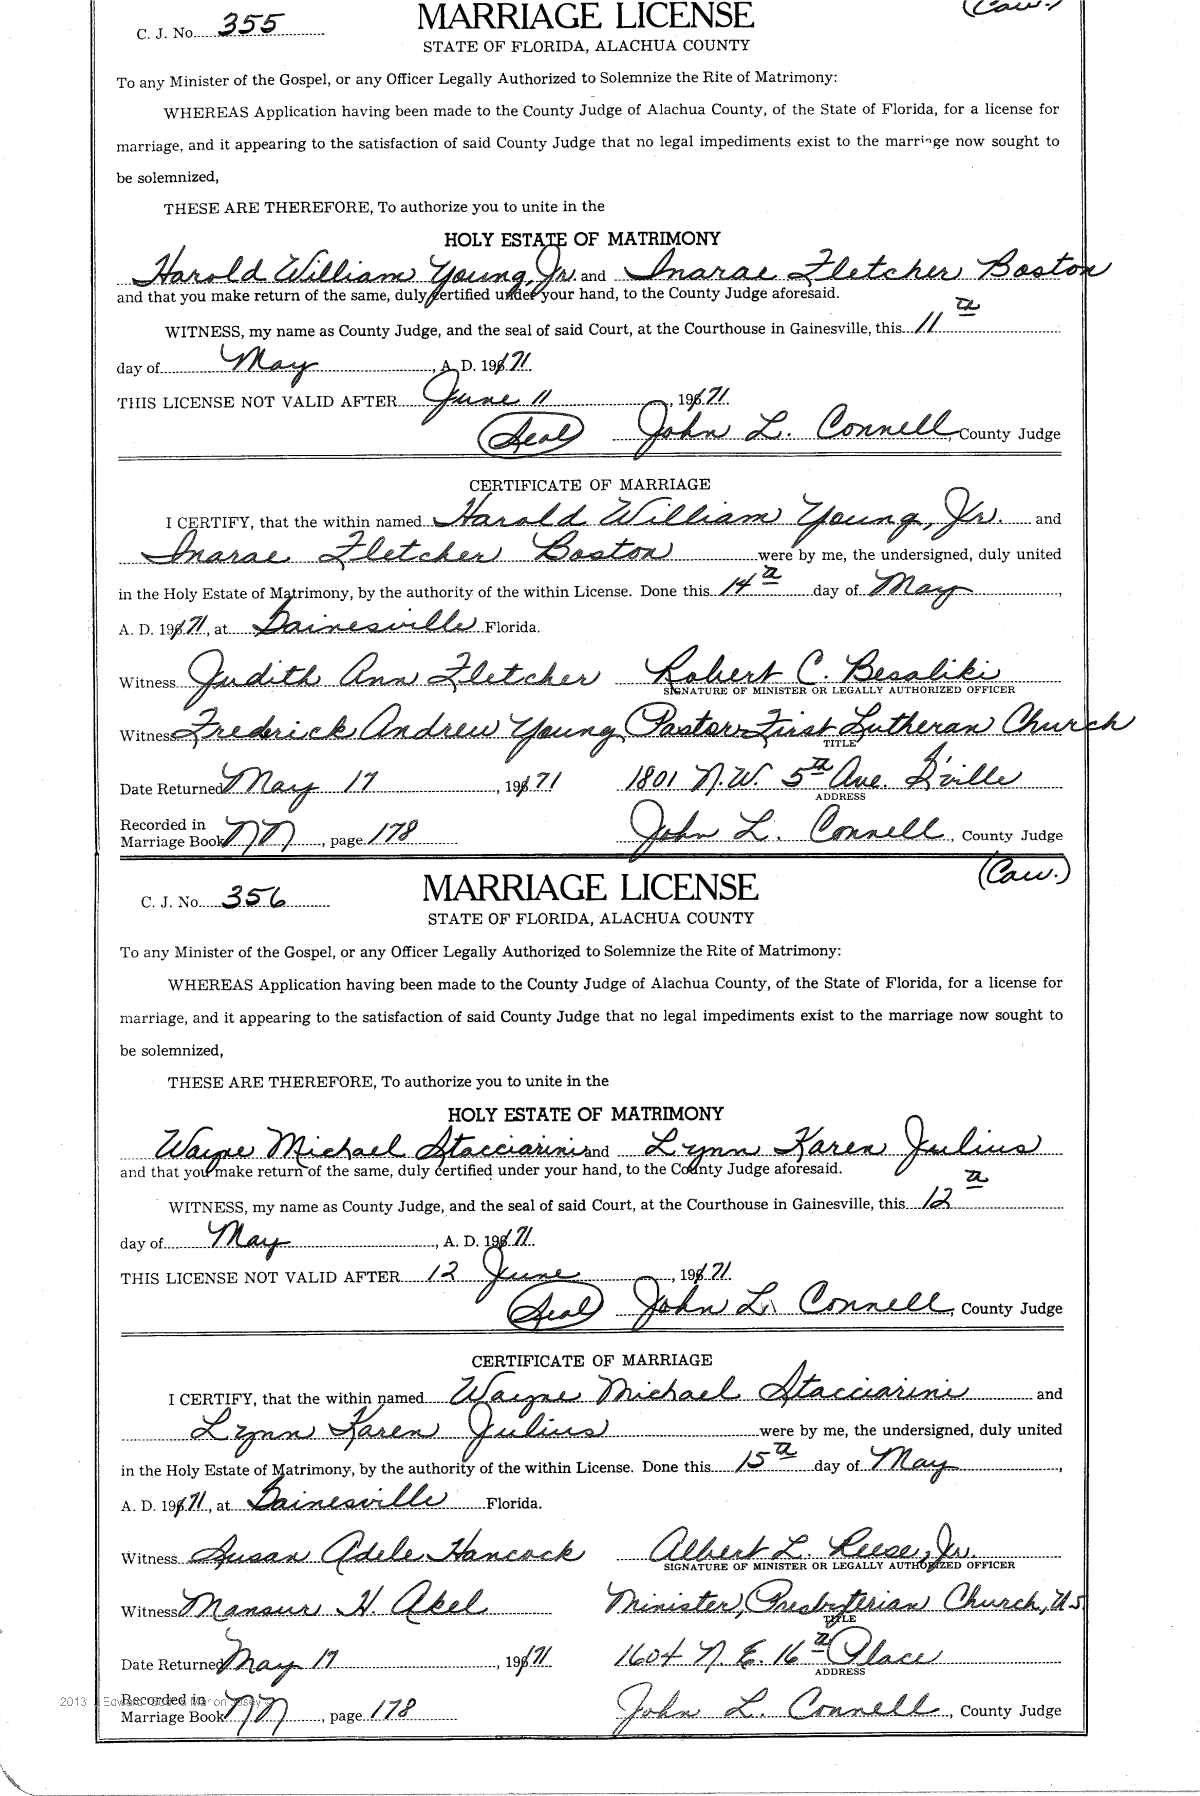 (Cau.)
C. J. No. 355 MARRIAGE LICENSE
STATE OF FLORIDA, ALACHUA COUNTY
To any Minister of the Gospel, or any Officer Legally Authorized to Solemnize the Rite of Matrimony:
WHEREAS Application having been made to the County Judge of Alachua County, of the State of Florida, for a license for
marriage, and it appearing to the satisfaction of said County Judge that no legal impediments exist to the marriage now sought to
be solemnized,
THESE ARE THEREFORE, To authorize you to unite in the
HOLY ESTATE OF MATRIMONY
Harold William Young, Jr. and Inarae Fletcher Boston
and that you make return of the same, duly certified under your hand, to the County Judge aforesaid.
WITNESS, my name as County Judge, and the seal of said Court, at the Courthouse in Gainesville, this 11th
day of May, A. D. 1971.
THIS LICENSE NOT VALID AFTER June 11, 1971.
(Seal) John L. Connell, County Judge
CERTIFICATE OF MARRIAGE
I CERTIFY, that the within named Harold William Young, Jr. and
Inarae Fletcher Boston were by me, the undersigned, duly united
in the Holy Estate of Matrimony, by the authority of the within License. Done this 14th day of May,
A. D. 1971, at Gainesville Florida.
Witness Judith Ann Fletcher Robert C. Besaliki
SIGNATURE OF MINISTER OR LEGALLY AUTHORIZED OFFICER
Witness Frederick Andrew Young Pastor-First Lutheran Church
TITLE
Date Returned May 17, 1971 1801 N.W. 5th Ave. G'ville
ADDRESS
Recorded in
Marriage Book NN, page 178 John L. Connell, County Judge
(Cau.)
C. J. No. 356 MARRIAGE LICENSE
STATE OF FLORIDA, ALACHUA COUNTY
To any Minister of the Gospel, or any Officer Legally Authorized to Solemnize the Rite of Matrimony:
WHEREAS Application having been made to the County Judge of Alachua County, of the State of Florida, for a license for
marriage, and it appearing to the satisfaction of said County Judge that no legal impediments exist to the marriage now sought to
be solemnized,
THESE ARE THEREFORE, To authorize you to unite in the
HOLY ESTATE OF MATRIMONY
Wayne Michael Stacciarini and Lynn Karen Julius
and that you make return of the same, duly certified under your hand, to the County Judge aforesaid.
WITNESS, my name as County Judge, and the seal of said Court, at the Courthouse in Gainesville, this 12th
day of May, A. D. 1971.
THIS LICENSE NOT VALID AFTER 12 June, 1971.
(Seal) John L. Connell, County Judge
CERTIFICATE OF MARRIAGE
I CERTIFY, that the within named Wayne Michael Stacciarini and
Lynn Karen Julius were by me, the undersigned, duly united
in the Holy Estate of Matrimony, by the authority of the within License. Done this 15th day of May,
A. D. 1971, at Gainesville Florida.
Witness Susan Adele Hancock Albert L. Reese, Jr.
SIGNATURE OF MINISTER OR LEGALLY AUTHORIZED OFFICER
Witness Mansur H. Akel Minister, Presbyterian Church, U.S.
TITLE
Date Returned May 17, 1971 1604 N. E. 16th Place
ADDRESS
2013
Recorded in
Marriage Book NN, page 178 John L. Connell, County Judge